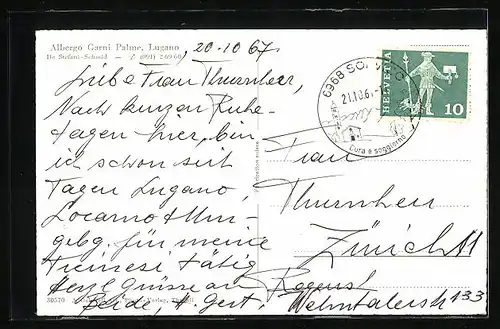 Albergo Garni Palme, Lugano
Dir. Stefani-Schmid - (091) 2 69 60
20-10 67
Liebe Frau Thurnherr,
Nach kurzen Ruhe-
tagen hier, bin
ich schon seit
Tagen Lugano,
Locarno & Um-
gebg. für meine
Ticinesi tätig
Herzl Grüsse an
Beide, H. Gerst.
30570
Verlag,
6968 SON
21.10.67
Cura e soggiorno
HELVETIA
10
Frau
Thurnherr
Zürich 11
Regenst
Wehntalerstr 133